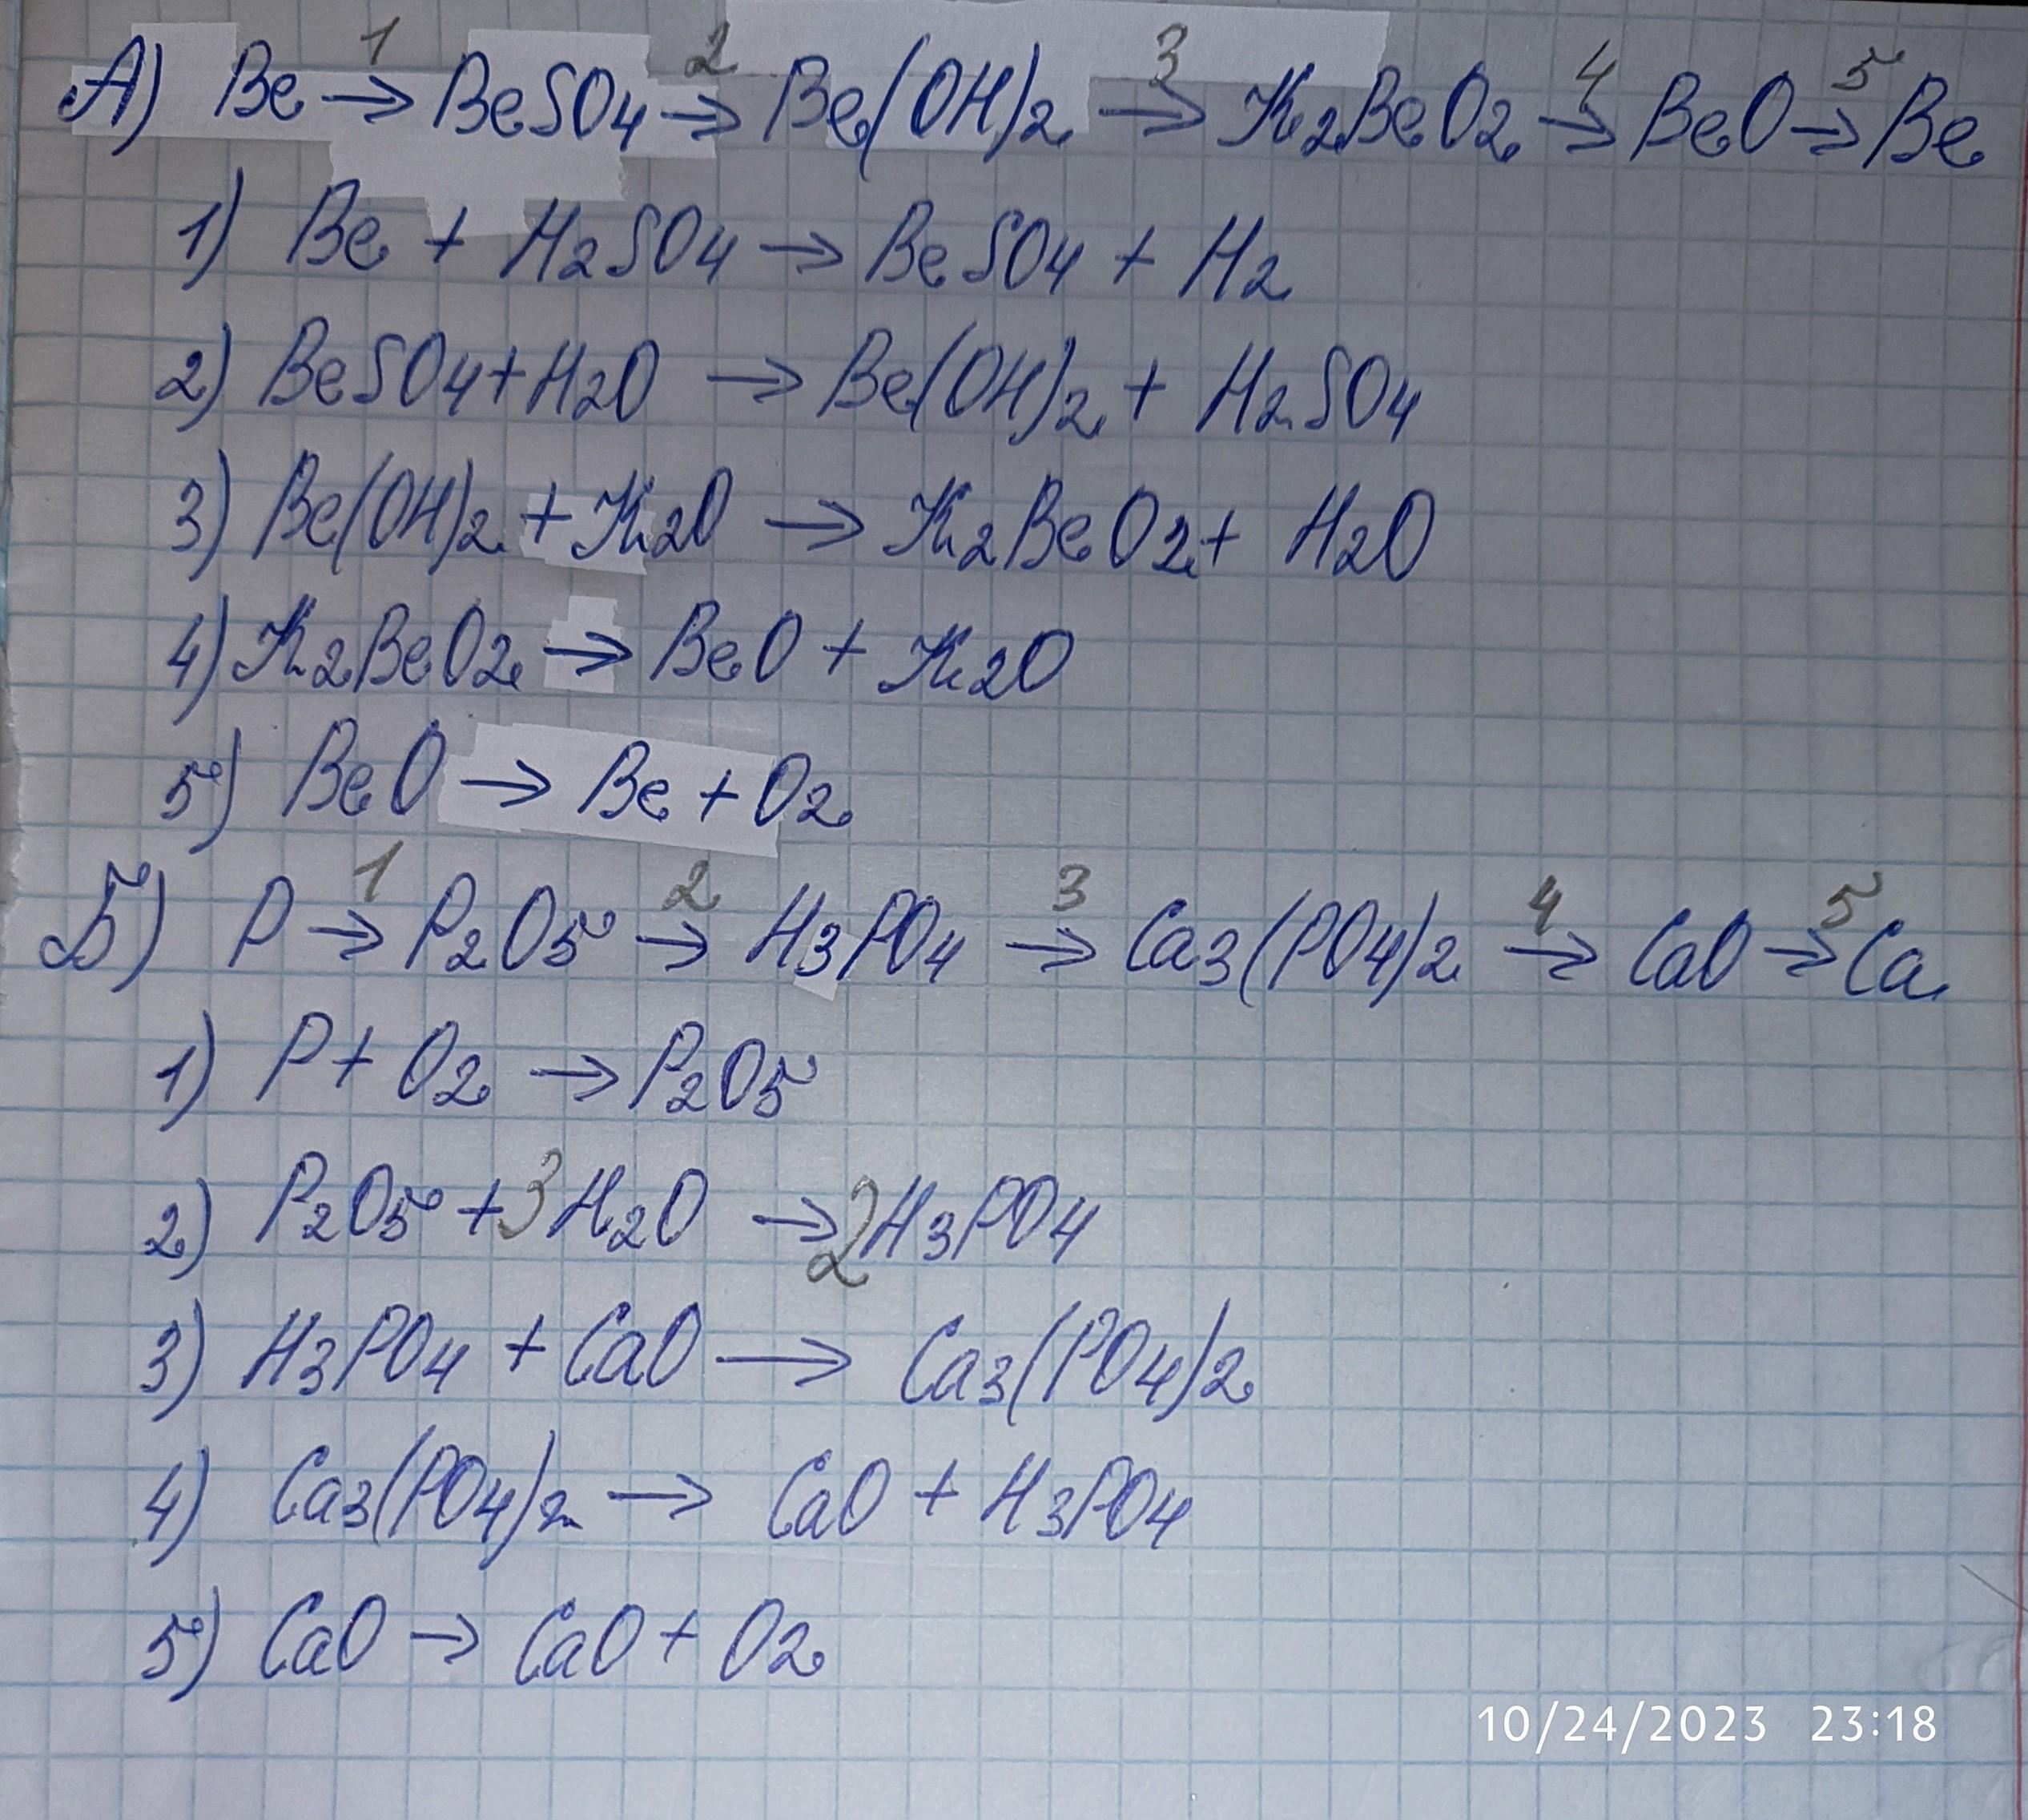 1 2 3 4 5
А) Be → BeSO4 → Be(OH)2 → K2BeO2 → BeO → Be
1) Be + H2SO4 → BeSO4 + H2
2) BeSO4 + H2O → Be(OH)2 + H2SO4
3) Be(OH)2 + K2O → K2BeO2 + H2O
4) K2BeO2 → BeO + K2O
5) BeO → Be + O2
1 2 3 4 5
Б) P → P2O5 → H3PO4 → Ca3(PO4)2 → CaO → Ca
1) P + O2 → P2O5
2) P2O5 + 3H2O → 2H3PO4
3) H3PO4 + CaO → Ca3(PO4)2
4) Ca3(PO4)2 → CaO + H3PO4
5) CaO → CaO + O2
10/24/2023 23:18